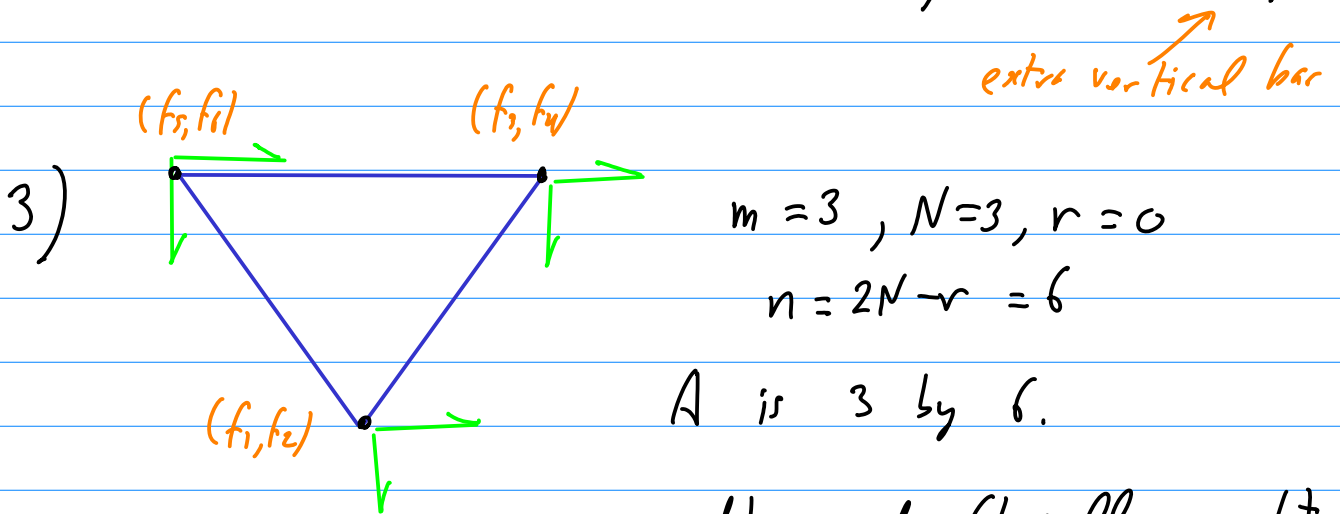 extra vertical bar
(f5, f6) (f3, f4)
3)
m = 3, N = 3, r = 0
n = 2N - r = 6
(f1, f2)
A is 3 by 6.